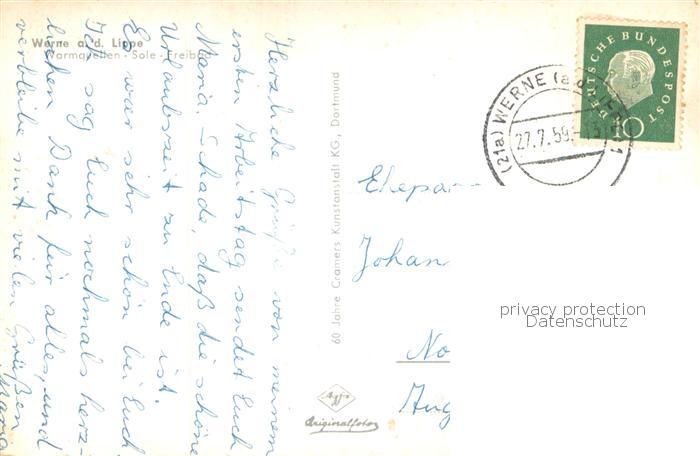 Werne a. d. Lippe
Warmquellen - Sole - Freibad
Herzliche Grüße von meinem
ersten Arbeitstag sendet Euch
Maria. Schade, daß die schöne
Urlaubszeit zu Ende ist.
Es war sehr schön bei Euch.
Ich sag Euch nochmals herz-
lichen Dank für alles, und
verbleibe mit vielen Grüßen
Maria
60 Jahre Cramers Kunstanstalt KG., Dortmund
Agfa
Originalfoto
DEUTSCHE BUNDESPOST
10
(21a) WERNE (a.d.
27.7.59.-
Ehepaar
Johan
No
Aug
privacy protection
Datenschutz